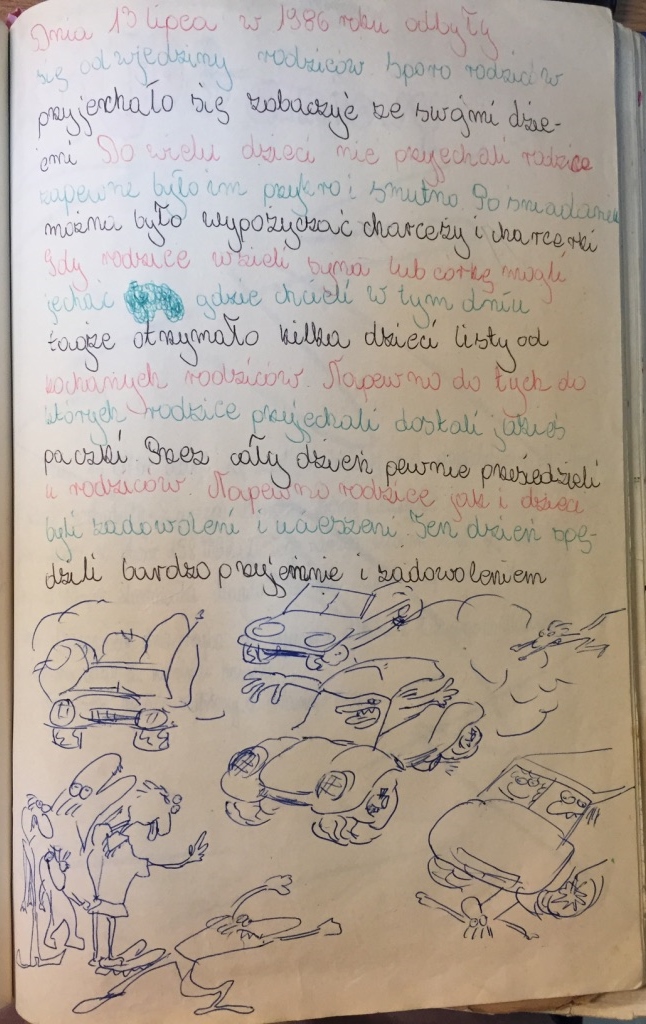 Dnia 13 lipca w 1986 roku odbyły
się odwjedzimy rodziców. Sporo rodziców
przyjechało się zobaczyć ze swojmi dzie-
ćmi Do wielu dzieci nie przyjechali rodzice
zapewne było im przykro i smutno. Po śniadaniu
można było wypożyczać charceży i charcerki
Gdy rodzice wzieli syna lub córkę mogli
jechać gdzie chcieli w tym dniu
tagże otrzymało kilka dzieci listy od
kochanych rodziców. Napewno do tych do
których rodzice przyjechali dostali jakieś
paczki. Przez cały dzień pewnie przesiedzieli
u rodziców. Napewno rodzice jak i dzieci
byli zadowoleni i ucieszeni. Ten dzień spę-
dzili bardzo przyjemnie i zadowoleniem